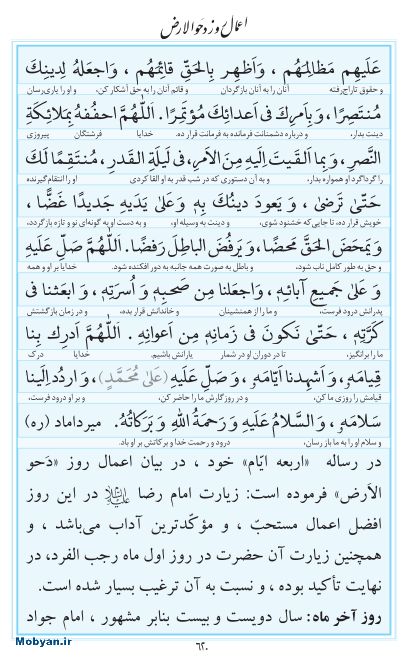 اعمال روز دحوالارض
عَلَيهِم مَظالِمَهُم ، وَاَظهِر بِالحَقِّ قائِمَهُم ، وَاجعَلهُ لِدينِكَ
و حقوق تاراج‌رفته آنان را به آنان بازگردان و قائم آنان را به حق آشکار کن، و او را یاری‌رسان
مُنتَصِرًا، وَبِاَمرِكَ فى اَعدائِكَ مُؤتَمِرًا. اَللّٰهُمَّ احفُفهُ بِمَلائِكَةِ
دینت بدار، و درباره دشمنانت فرمانده به فرمانت قرار ده. خدایا فرشتگان پیروزی
النَّصرِ، وَبِما اَلقَيتَ اِلَيهِ مِنَ الاَمرِ، فى لَيلَةِ القَدرِ، مُنتَقِمًا لَكَ
را گرداگرد او همواره بدار، و به آن دستوری که در شب قدر به او القا کردی او را انتقام‌گیرنده
حَتّىٰ تَرضىٰ ، وَ يَعودَ دينُكَ بِهِ وَ عَلىٰ يَدَيهِ جَديدًا غَضًّا ،
خویش قرار ده، تا جایی که خشنود شوی، و دینت به وسیله او، و به دست او به گونه‌ای نو و تازه بازگردد،
وَ يَمحَضَ الحَقَّ مَحضًا، وَ يَرفُضَ الباطِلَ رَفضًا. اَللّٰهُمَّ صَلِّ عَلَيهِ
و حق به طور کامل ناب شود، و باطل به صورت همه جانبه به دور افکنده شود. خدایا بر او و همه
وَ عَلىٰ جَميعِ آبائِهِ، وَاجعَلنا مِن صَحبِهِ وَ اُسرَتِهِ ، وَ ابعَثنا فى
پدرانش درود فرست، و ما را از همنشینان و خاندانش قرار بده، و در زمان بازگشتش
كَرَّتِهِ ، حَتّىٰ نَكونَ فى زَمانِهِ مِن اَعوانِهِ . اَللّٰهُمَّ اَدرِك بِنا
ما را برانگیز، تا در دوران او در شمار یارانش باشیم. خدایا درک
قِيامَهُ، وَ اَشهِدنا اَيّامَهُ ، وَ صَلِّ عَلَيهِ (عَلىٰ مُحَمَّدٍ)، وَ اردُد اِلَينا
قیامش را روزی ما کن، و در روزگارش ما را حاضر کن، و بر او درود فرست،
سَلامَهُ ، وَ السَّلامُ عَلَيهِ وَ رَحمَةُ اللّٰهِ وَ بَرَكاتُهُ. میرداماد (ره)
و سلام او را به ما باز رسان، درود و رحمت خدا و برکاتش بر او باد.
در رساله «اربعه ایّام» خود ، در بیان اعمال روز «دَحو
الاَرض» فرموده است: زیارت امام رضا علیه‌السلام در این روز
افضل اعمال مستحبّ ، و مؤکّدترین آداب می‌باشد ، و
همچنین زیارت آن حضرت در روز اول ماه رجب الفرد، در
نهایت تأکید بوده ، و نسبت به آن ترغیب بسیار شده است.
روز آخر ماه: سال دویست و بیست بنابر مشهور ، امام جواد
Mobyan.ir
٦٢٠